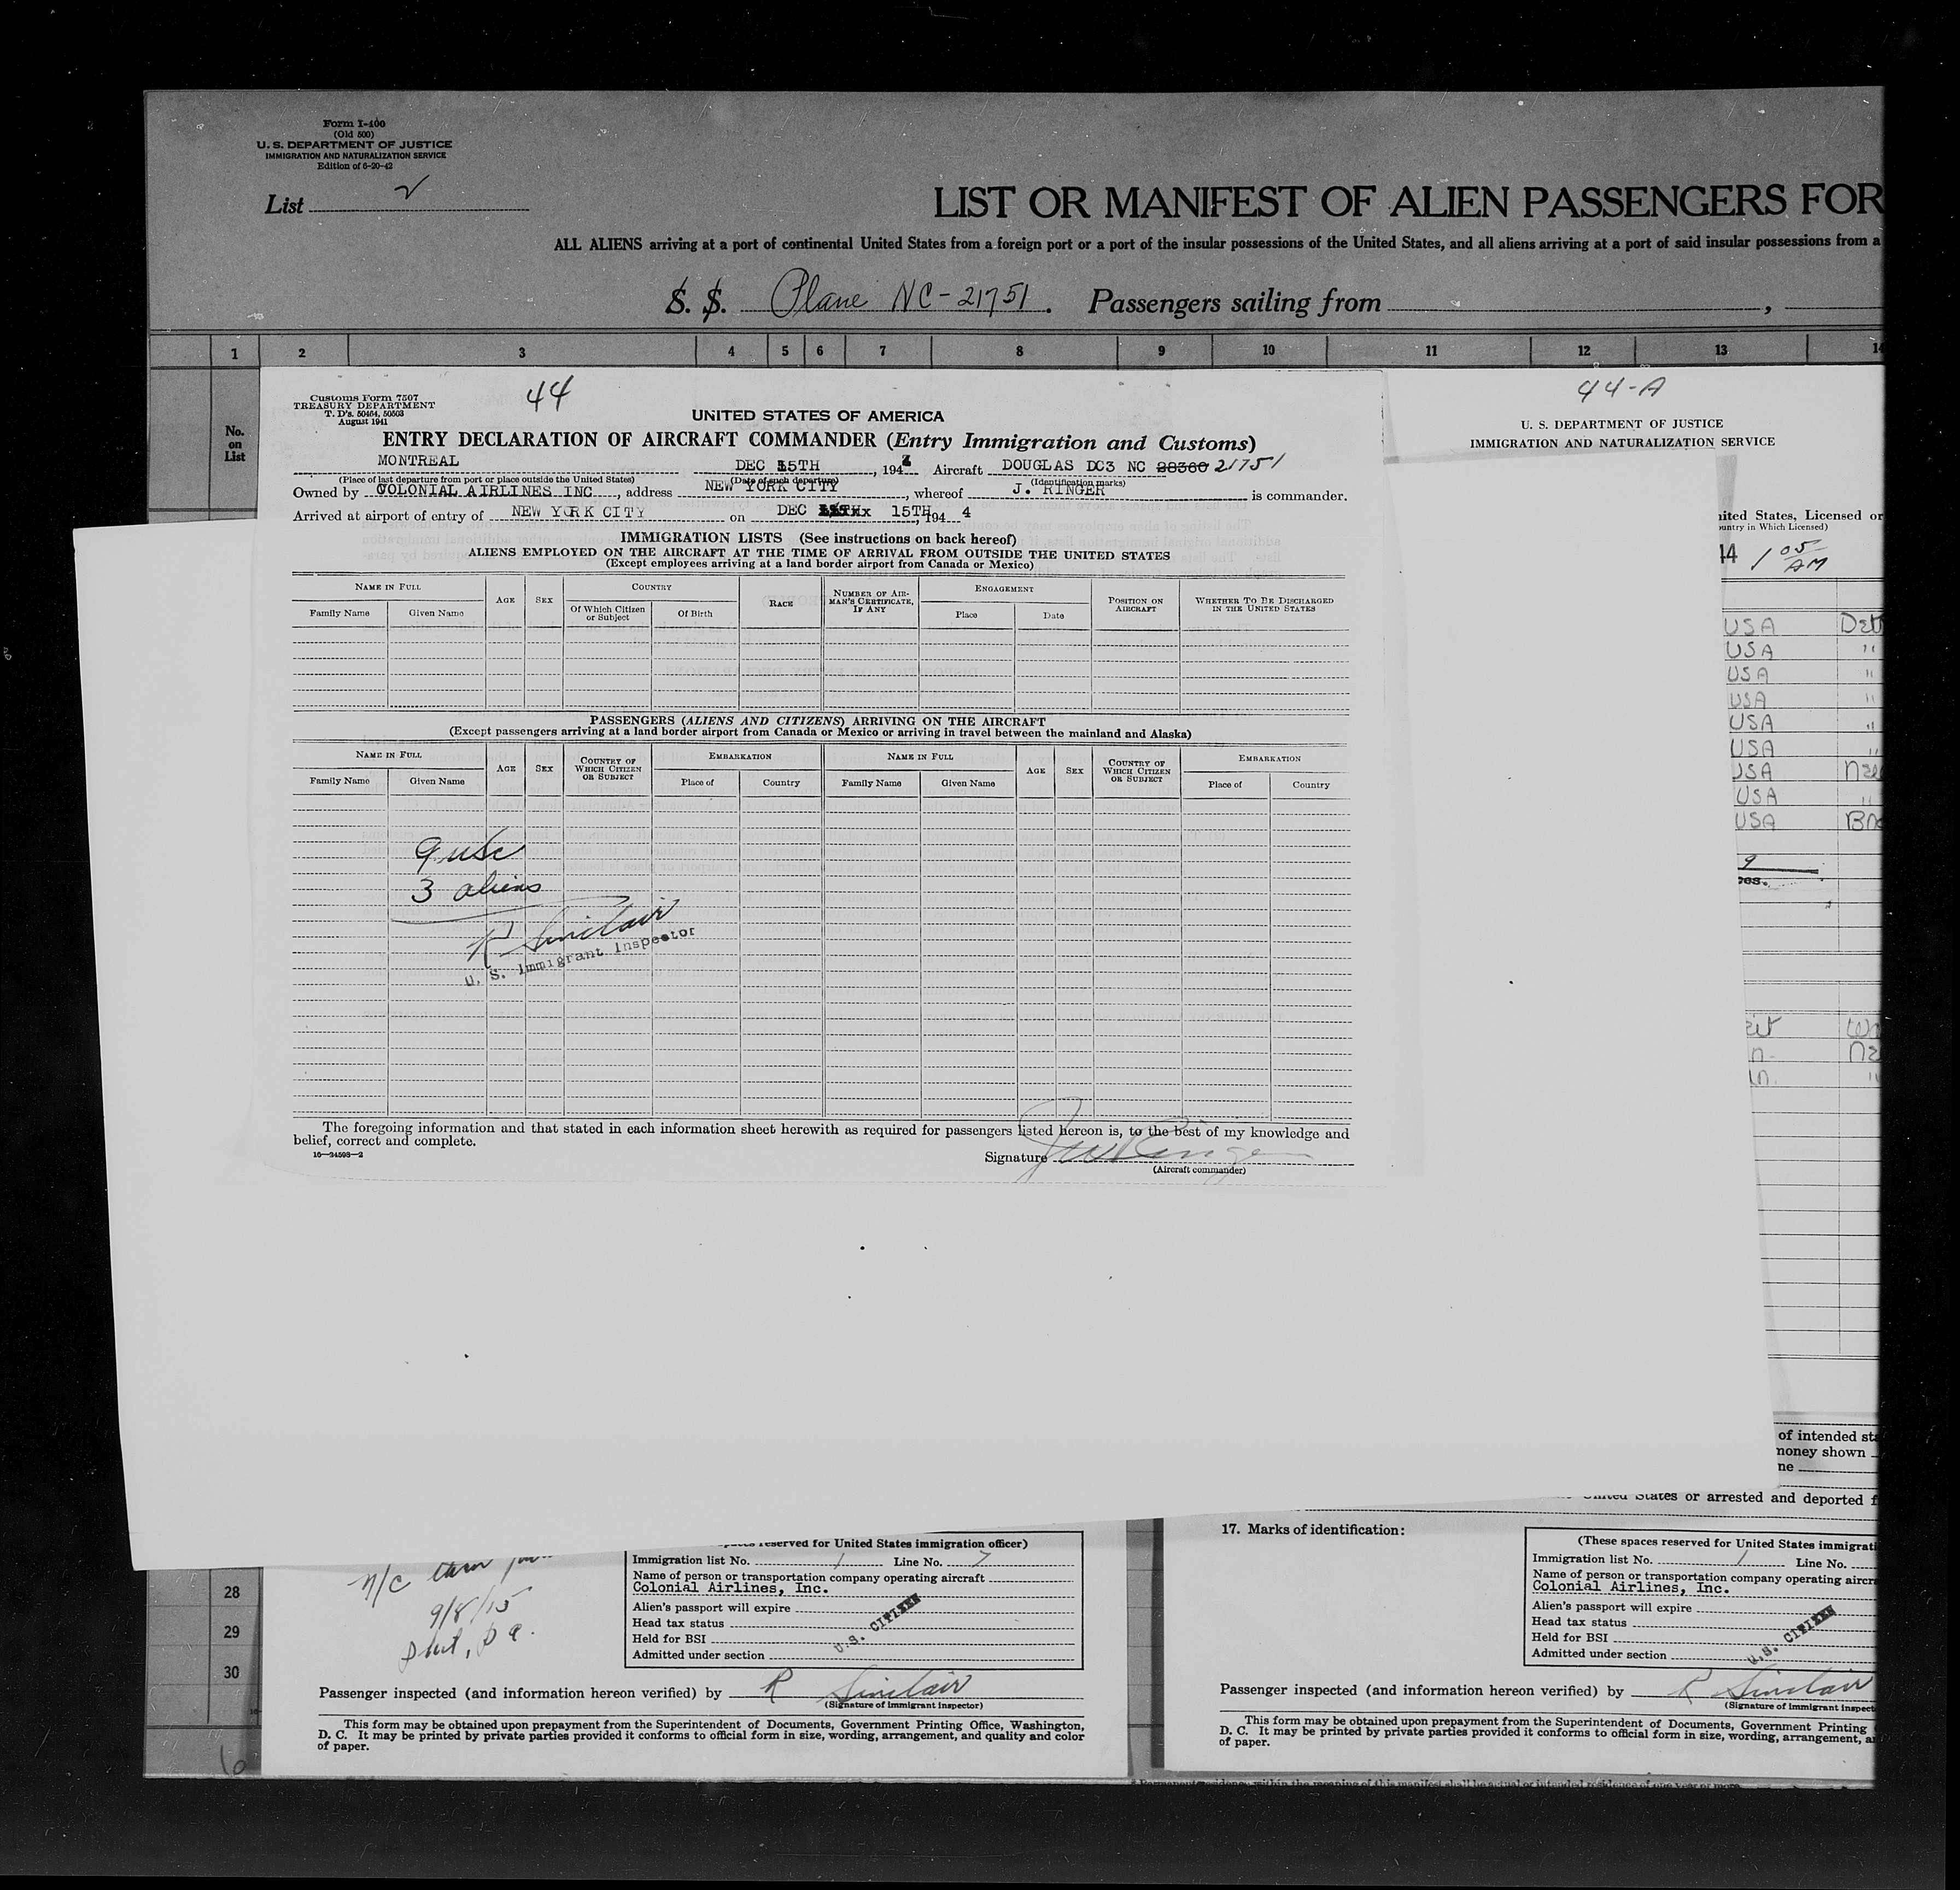 Form I-400
(Old 500)
U. S. DEPARTMENT OF JUSTICE
IMMIGRATION AND NATURALIZATION SERVICE
Edition of 6-20-42
List 2
LIST OR MANIFEST OF ALIEN PASSENGERS FOR
ALL ALIENS arriving at a port of continental United States from a foreign port or a port of the insular possessions of the United States, and all aliens arriving at a port of said insular possessions from a
S. S. Plane NC-21751. Passengers sailing from ,
1 2 3 4 5 6 7 8 9 10 11 12 13 14
No. on List
Customs Form 7507
TREASURY DEPARTMENT
T. D's. 50464, 50503
August 1941
44
UNITED STATES OF AMERICA
ENTRY DECLARATION OF AIRCRAFT COMMANDER (Entry Immigration and Customs)
MONTREAL DEC 15TH, 194 Aircraft DOUGLAS DC3 NC 28360 21751
(Place of last departure from port or place outside the United States) (Date of such departure) (Identification marks)
Owned by COLONIAL AIRLINES INC, address NEW YORK CITY, whereof J. RINGER is commander.
Arrived at airport of entry of NEW YORK CITY on DEC 15TH, 194 4
IMMIGRATION LISTS (See instructions on back hereof)
ALIENS EMPLOYED ON THE AIRCRAFT AT THE TIME OF ARRIVAL FROM OUTSIDE THE UNITED STATES
(Except employees arriving at a land border airport from Canada or Mexico)
NAME IN FULL AGE SEX COUNTRY RACE NUMBER OF AIRMAN'S CERTIFICATE, IF ANY ENGAGEMENT POSITION ON AIRCRAFT WHETHER TO BE DISCHARGED IN THE UNITED STATES
Family Name Given Name Of Which Citizen or Subject Of Birth Place Date
PASSENGERS (ALIENS AND CITIZENS) ARRIVING ON THE AIRCRAFT
(Except passengers arriving at a land border airport from Canada or Mexico or arriving in travel between the mainland and Alaska)
NAME IN FULL AGE SEX COUNTRY OF WHICH CITIZEN OR SUBJECT EMBARKATION NAME IN FULL AGE SEX COUNTRY OF WHICH CITIZEN OR SUBJECT EMBARKATION
Family Name Given Name Place of Country Family Name Given Name Place of Country
9 usc
3 aliens
R Sinclair
U. S. Immigrant Inspector
The foregoing information and that stated in each information sheet herewith as required for passengers listed hereon is, to the best of my knowledge and
belief, correct and complete.
16—24598-2
Signature
(Aircraft commander)
44-A
U. S. DEPARTMENT OF JUSTICE
IMMIGRATION AND NATURALIZATION SERVICE
ited States, Licensed or
untry in Which Licensed)
44 1 05 AM
USA Det
USA "
USA "
USA "
USA "
USA "
USA
USA "
USA
9
of intended sta
money shown
ne
United States or arrested and deported f
28
29
30
9/8/15
reserved for United States immigration officer)
Immigration list No. 1 Line No. 7
Name of person or transportation company operating aircraft
Colonial Airlines, Inc.
Alien's passport will expire
Head tax status
Held for BSI
Admitted under section
U.S. CITIZEN
Passenger inspected (and information hereon verified) by R Sinclair
(Signature of immigrant inspector)
This form may be obtained upon prepayment from the Superintendent of Documents, Government Printing Office, Washington,
D. C. It may be printed by private parties provided it conforms to official form in size, wording, arrangement, and quality and color
of paper.
17. Marks of identification:
(These spaces reserved for United States immigrati
Immigration list No. 1 Line No.
Name of person or transportation company operating aircr
Colonial Airlines, Inc.
Alien's passport will expire
Head tax status
Held for BSI
Admitted under section
U.S. CITIZEN
Passenger inspected (and information hereon verified) by R Sinclair
(Signature of immigrant inspect
This form may be obtained upon prepayment from the Superintendent of Documents, Government Printing
D. C. It may be printed by private parties provided it conforms to official form in size, wording, arrangement, a
of paper.